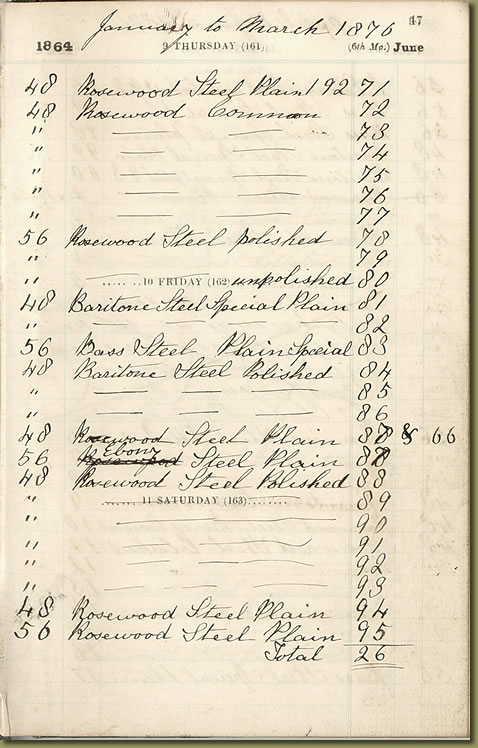 January to March 1876
47
1864 9 THURSDAY (161) (6th Mo.) June
48 Rosewood Steel Plain 192 71
48 Rosewood Common 72
" — — 73
" — — 74
" — — 75
" — — 76
" — — 77
56 Rosewood Steel polished 78
" 79
" 10 FRIDAY (162) unpolished 80
48 Baritone Steel Special Plain 81
" — — — — 82
56 Bass Steel Plain Special 83
48 Baritone Steel Polished 84
" — — — 85
" — — — 86
48 Rosewood Steel Plain 87 & 66
Ebony
56 Rosewood Steel Plain 87
48 Rosewood Steel Polished 88
" 11 SATURDAY (163) 89
" — — — 90
" — — — 91
" — — — 92
" — — — 93
48 Rosewood Steel Plain 94
56 Rosewood Steel Plain 95
Total 26